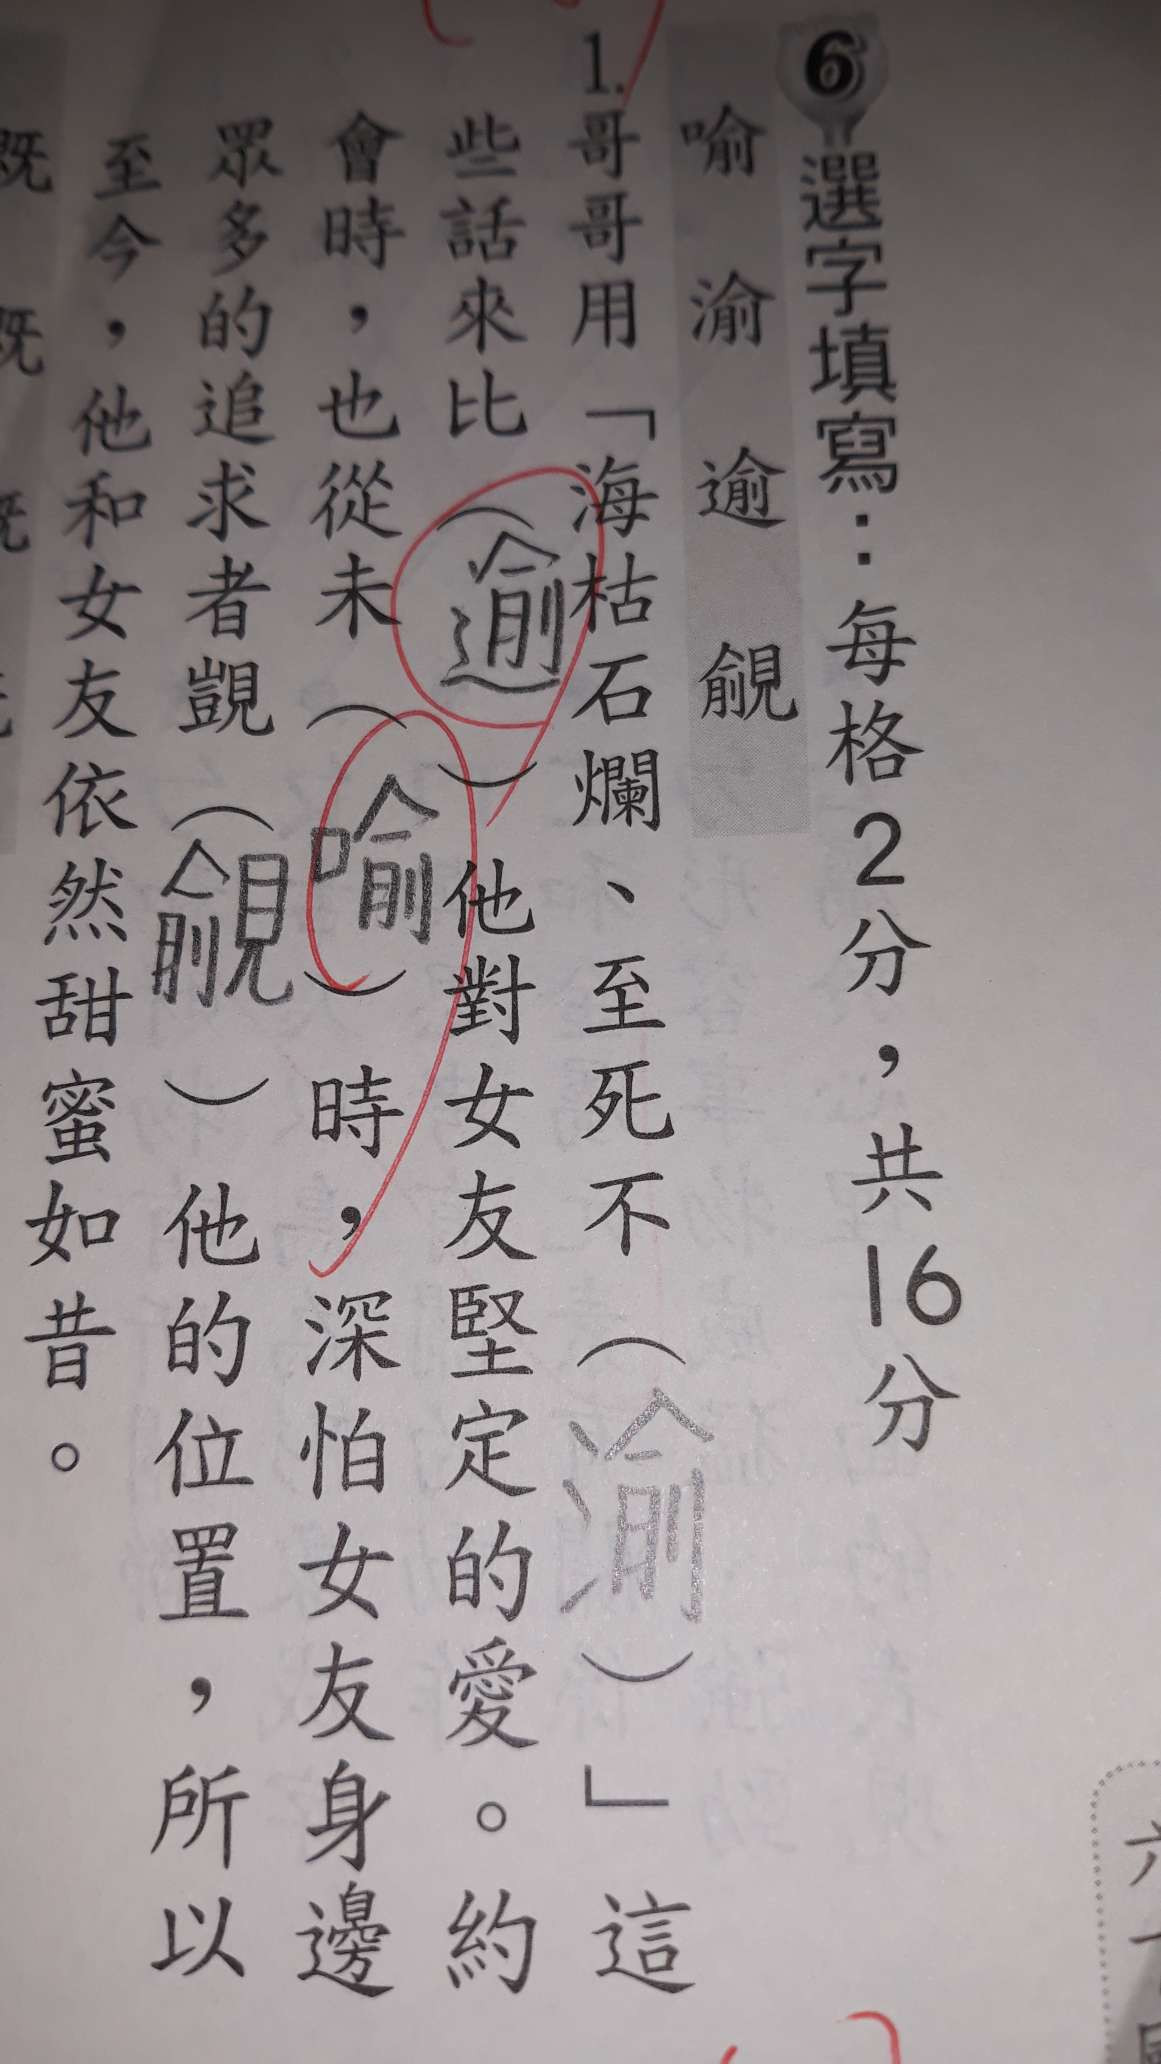 6選字填寫：每格2分，共16分
喻 渝 逾 覦
1.哥哥用「海枯石爛、至死不（渝）」這
些話來比（逾）他對女友堅定的愛。約
會時，也從未（喻）時，深怕女友身邊
眾多的追求者覬（覦）他的位置，所以
至今，他和女友依然甜蜜如昔。